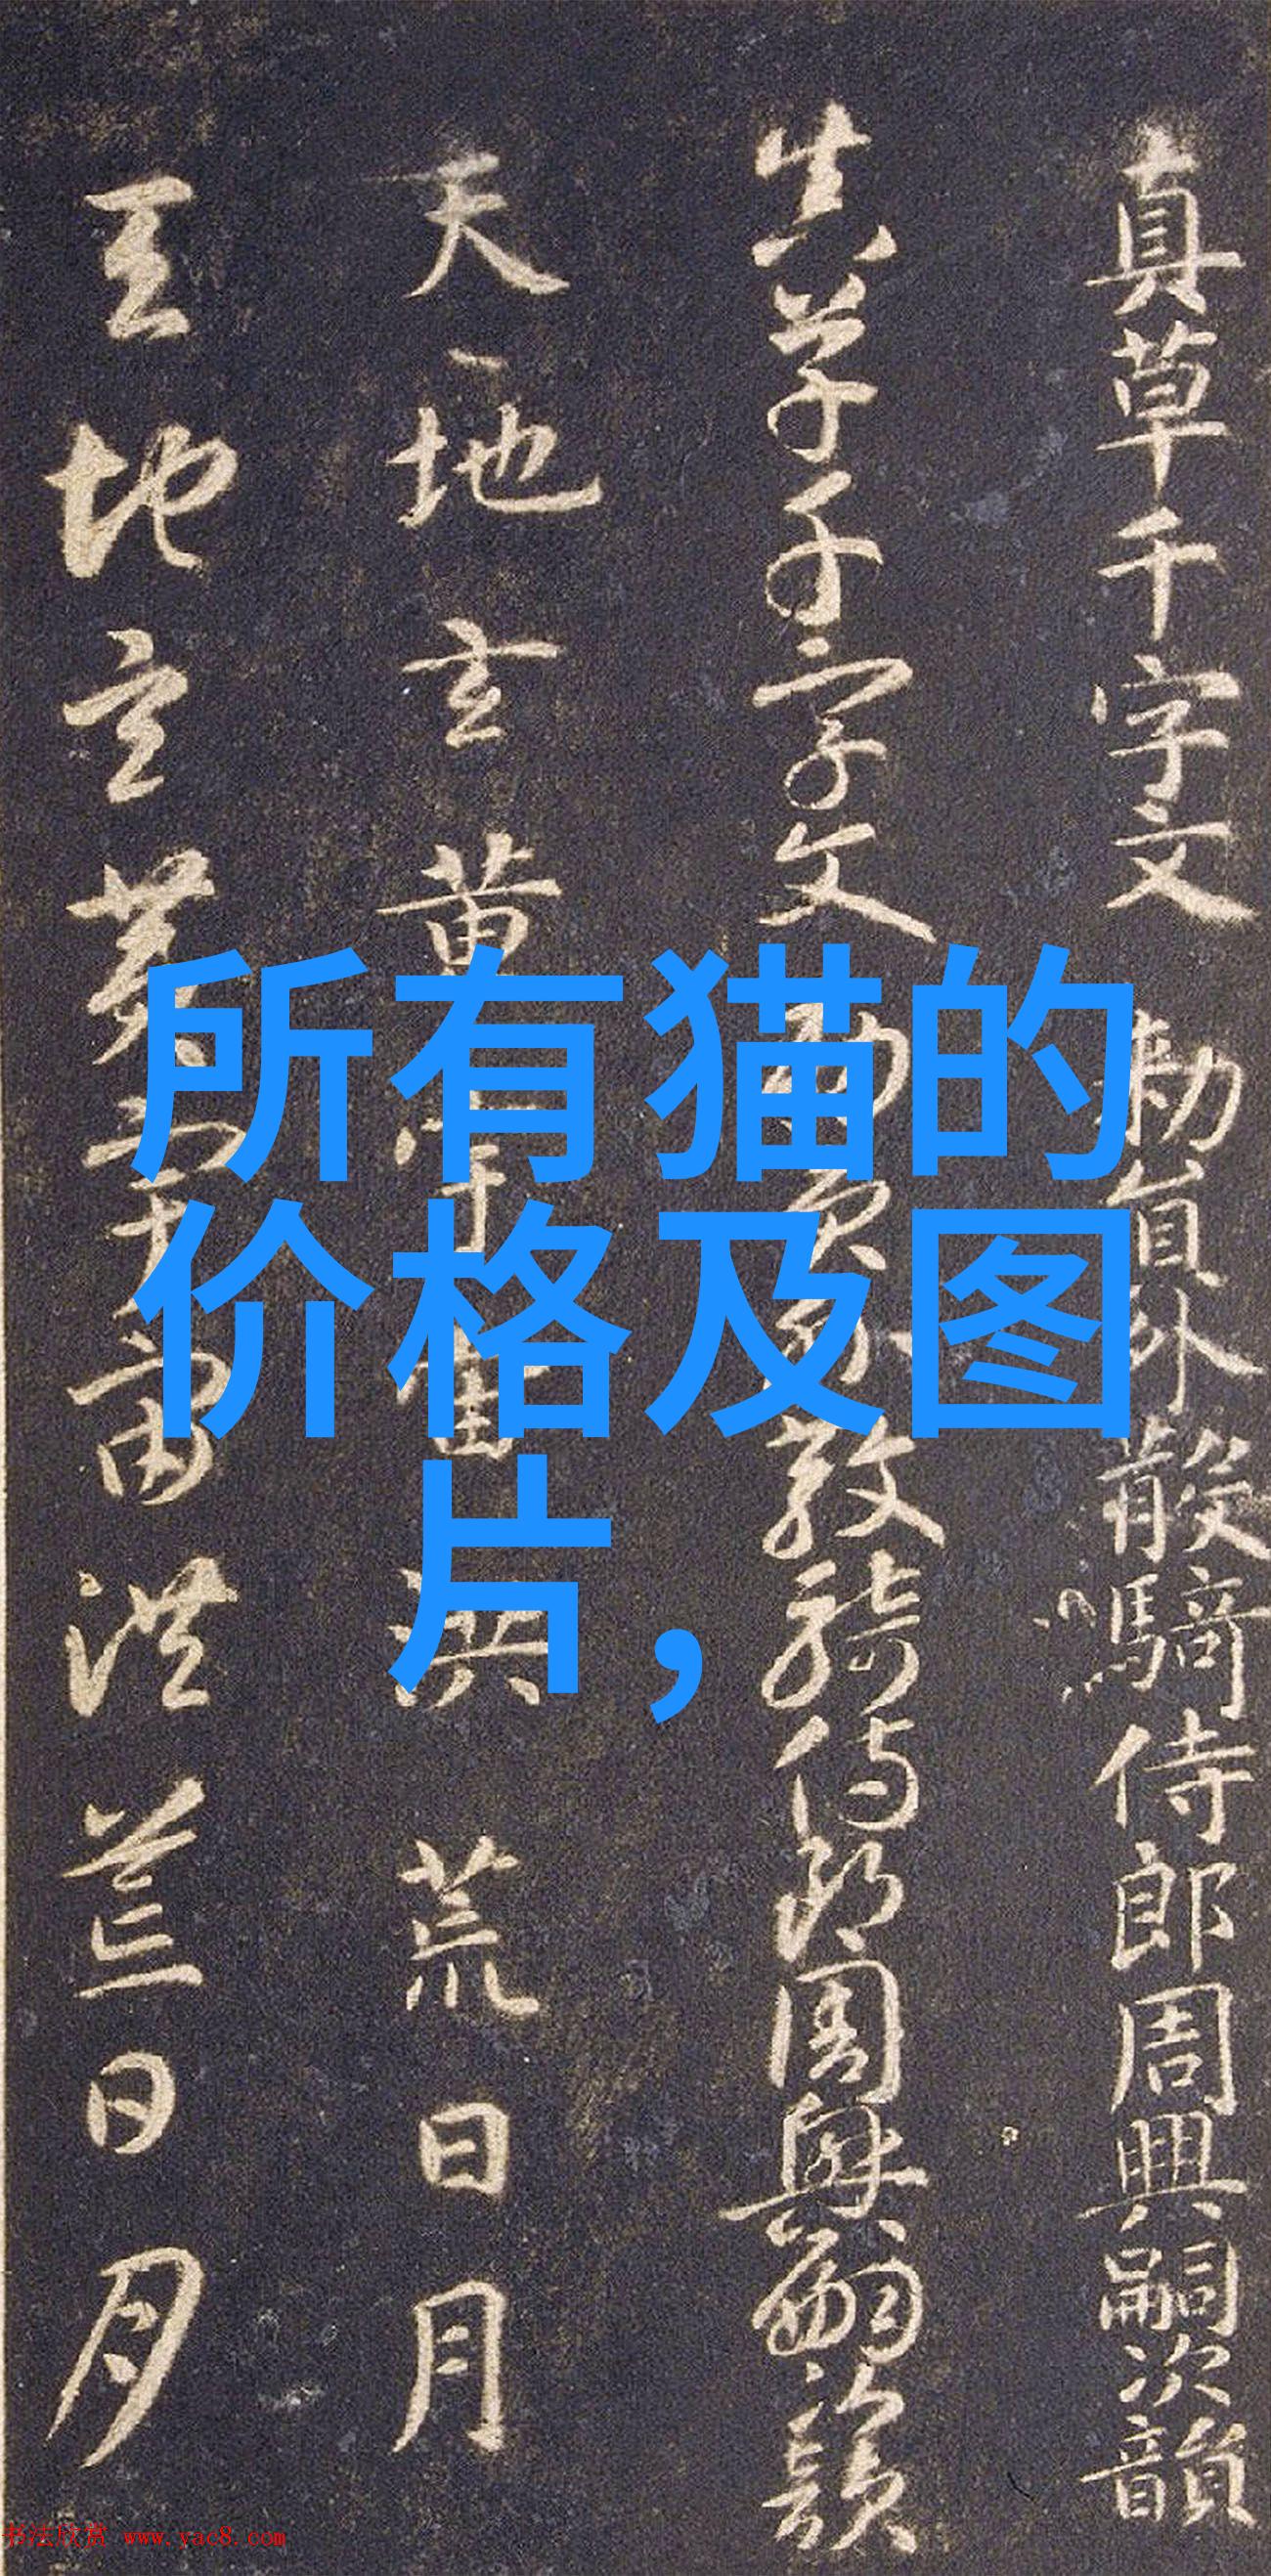 真草千字文 勅員外散騎侍郎周興嗣次韻
真草千字文 勅員外散騎侍郎周興嗣次韻
天地玄黄宇宙洪荒日月
天地玄黄宇宙洪荒日月
所有猫的
价格及图
片，
书法欣赏 www.yac8.com